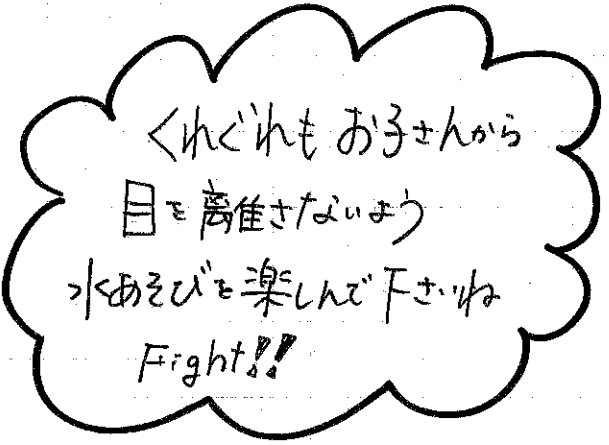 くれぐれもお子さんから
目を離さないよう
水あそびを楽しんで下さいね
Fight!!